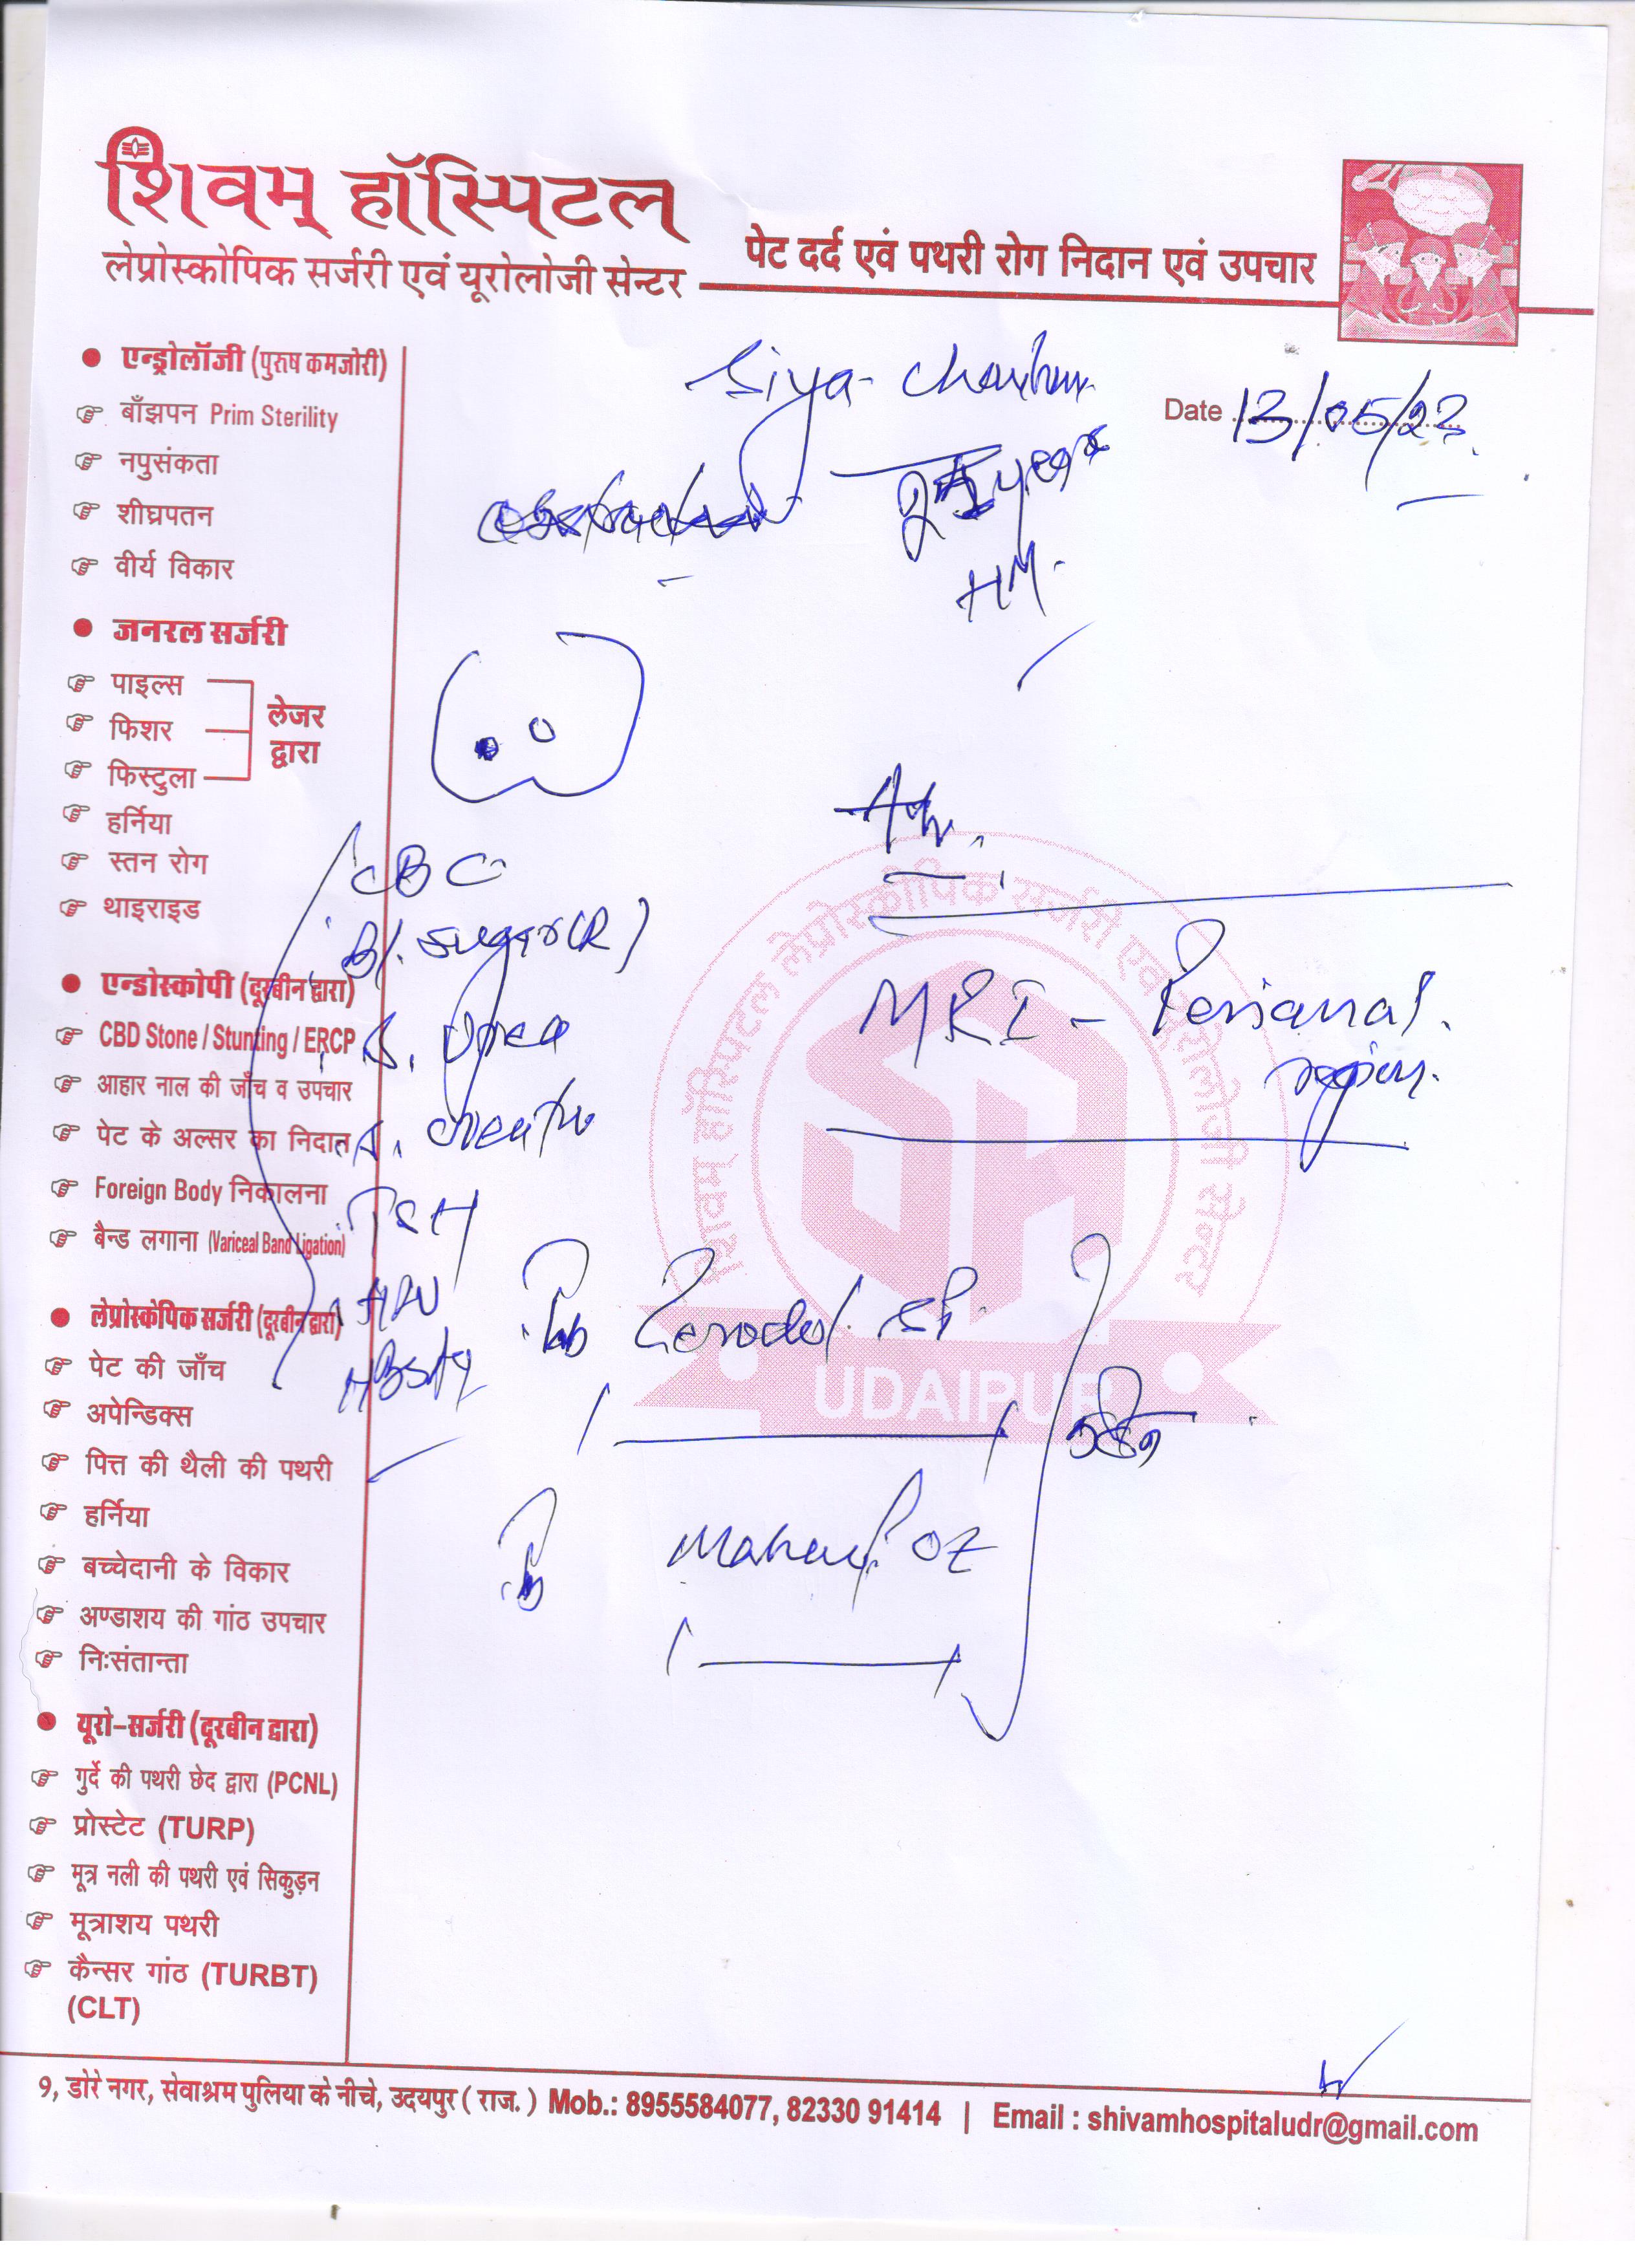 शिवम् हॉस्पिटल
लेप्रोस्कोपिक सर्जरी एवं यूरोलोजी सेन्टर
पेट दर्द एवं पथरी रोग निदान एवं उपचार
Siya
Date 13/05/23
year
एन्ड्रोलॉजी (पुरुष कमजोरी)
बाँझपन Prim Sterility
नपुसंकता
शीघ्रपतन
वीर्य विकार
जनरल सर्जरी
पाइल्स
फिशर
फिस्टुला
लेजर
द्वारा
हर्निया
स्तन रोग
थाइराइड
एन्डोस्कोपी (दूरबीन द्वारा)
CBD Stone / Stunting / ERCP
आहार नाल की जाँच व उपचार
पेट के अल्सर का निदान
Foreign Body निकालना
बैन्ड लगाना (Variceal Band Ligation)
लेप्रोस्केपिक सर्जरी (दूरबीन द्वारा)
पेट की जाँच
अपेन्डिक्स
पित्त की थैली की पथरी
हर्निया
बच्चेदानी के विकार
अण्डाशय की गांठ उपचार
निःसंतान्ता
यूरो-सर्जरी (दूरबीन द्वारा)
गुर्दे की पथरी छेद द्वारा (PCNL)
प्रोस्टेट (TURP)
मूत्र नली की पथरी एवं सिकुड़न
मूत्राशय पथरी
कैन्सर गांठ (TURBT)
(CLT)
CBC
Bl. sugar (R)
S. Urea
S.
TSH
HBsAg
MRI - Perianal
region.
Zerodol SP
OZ
शिवम् हॉस्पिटल लेप्रोस्कोपिक सर्जरी एवं यूरोलोजी सेन्टर
UDAIPUR
9, डोरे नगर, सेवाश्रम पुलिया के नीचे, उदयपुर ( राज. ) Mob.: 8955584077, 82330 91414 | Email : shivamhospitaludr@gmail.com